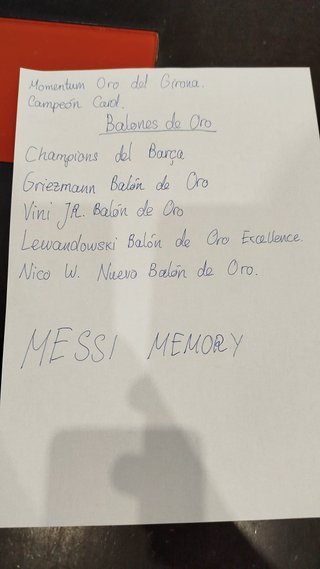 Momentum Oro del Girona.
Campeón Card.
Balones de Oro
Champions del Barça
Griezmann Balón de Oro
Vini JR. Balón de Oro
Lewandowski Balón de Oro Excellence.
Nico W. Nuevo Balón de Oro.
MESSI MEMORY